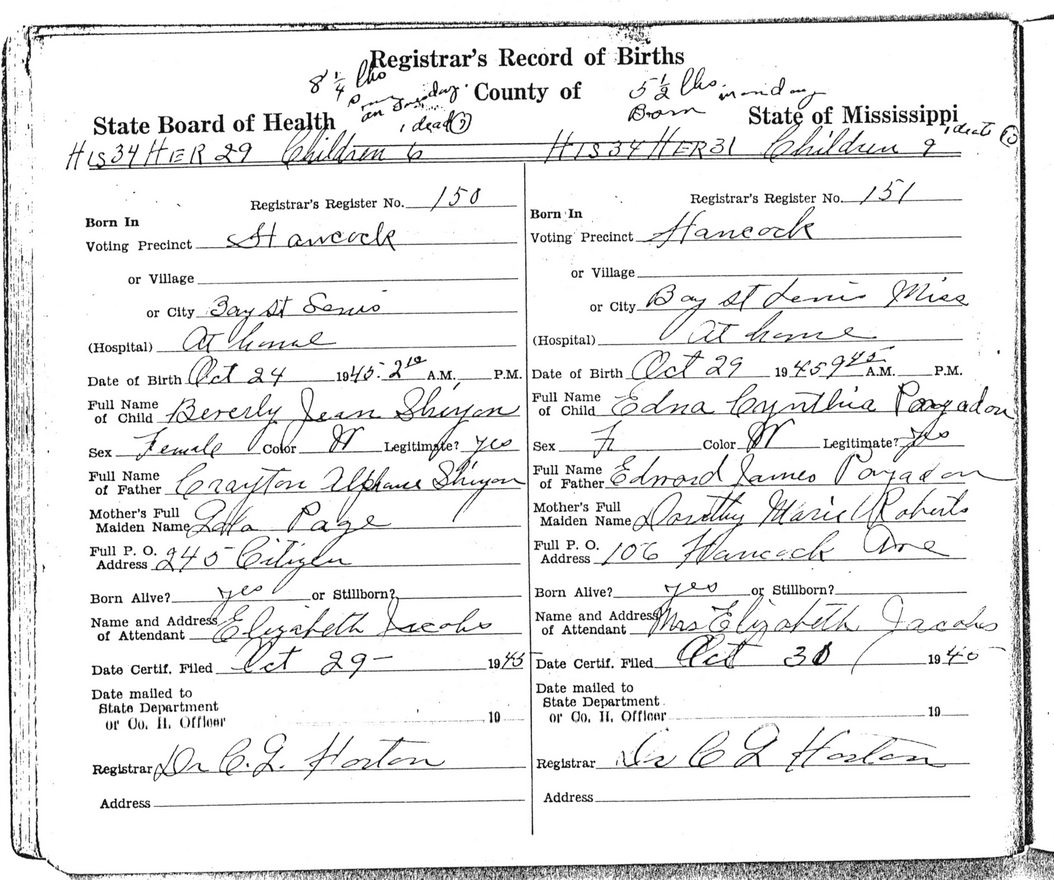 Registrar's Record of Births
8 1/4 lbs
on Sunday.
1 dead
County of
5 1/2 lbs. monday
Born
State Board of Health
State of Mississippi
HIS 34 HER 29 Children 6
HIS 34 HER 31 Children 9
Registrar's Register No. 150
Born In
Voting Precinct Hancock
or Village
or City Bay St Louis
(Hospital) At home
Date of Birth Oct 24 1945. 2 10 A.M. P.M.
Full Name
of Child Beverly Jean
Sex Female Color W Legitimate? yes
Full Name
of Father Crayton
Mother's Full
Maiden Name Page
Full P. O.
Address 245 Citizen
Born Alive? yes or Stillborn?
Name and Address
of Attendant Elizabeth Jacobs
Date Certif. Filed Oct 29 - 1945
Date mailed to
State Department
or Co. H. Officer 19
Registrar Dr C. G. Horton
Address
Registrar's Register No. 151
Born In
Voting Precinct Hancock
or Village
or City Bay St Louis Miss
(Hospital) At home
Date of Birth Oct 29 1945 9 45 A.M. P.M.
Full Name
of Child Edna Cynthia
Sex F Color W Legitimate? yes
Full Name
of Father Edward James
Mother's Full
Maiden Name Dorothy Marie Roberts
Full P. O.
Address 106 Hancock Ave
Born Alive? yes or Stillborn?
Name and Address
of Attendant Mrs Elizabeth Jacobs
Date Certif. Filed Oct 30 1945
Date mailed to
State Department
or Co. H. Officer 19
Registrar Dr C G Horton
Address